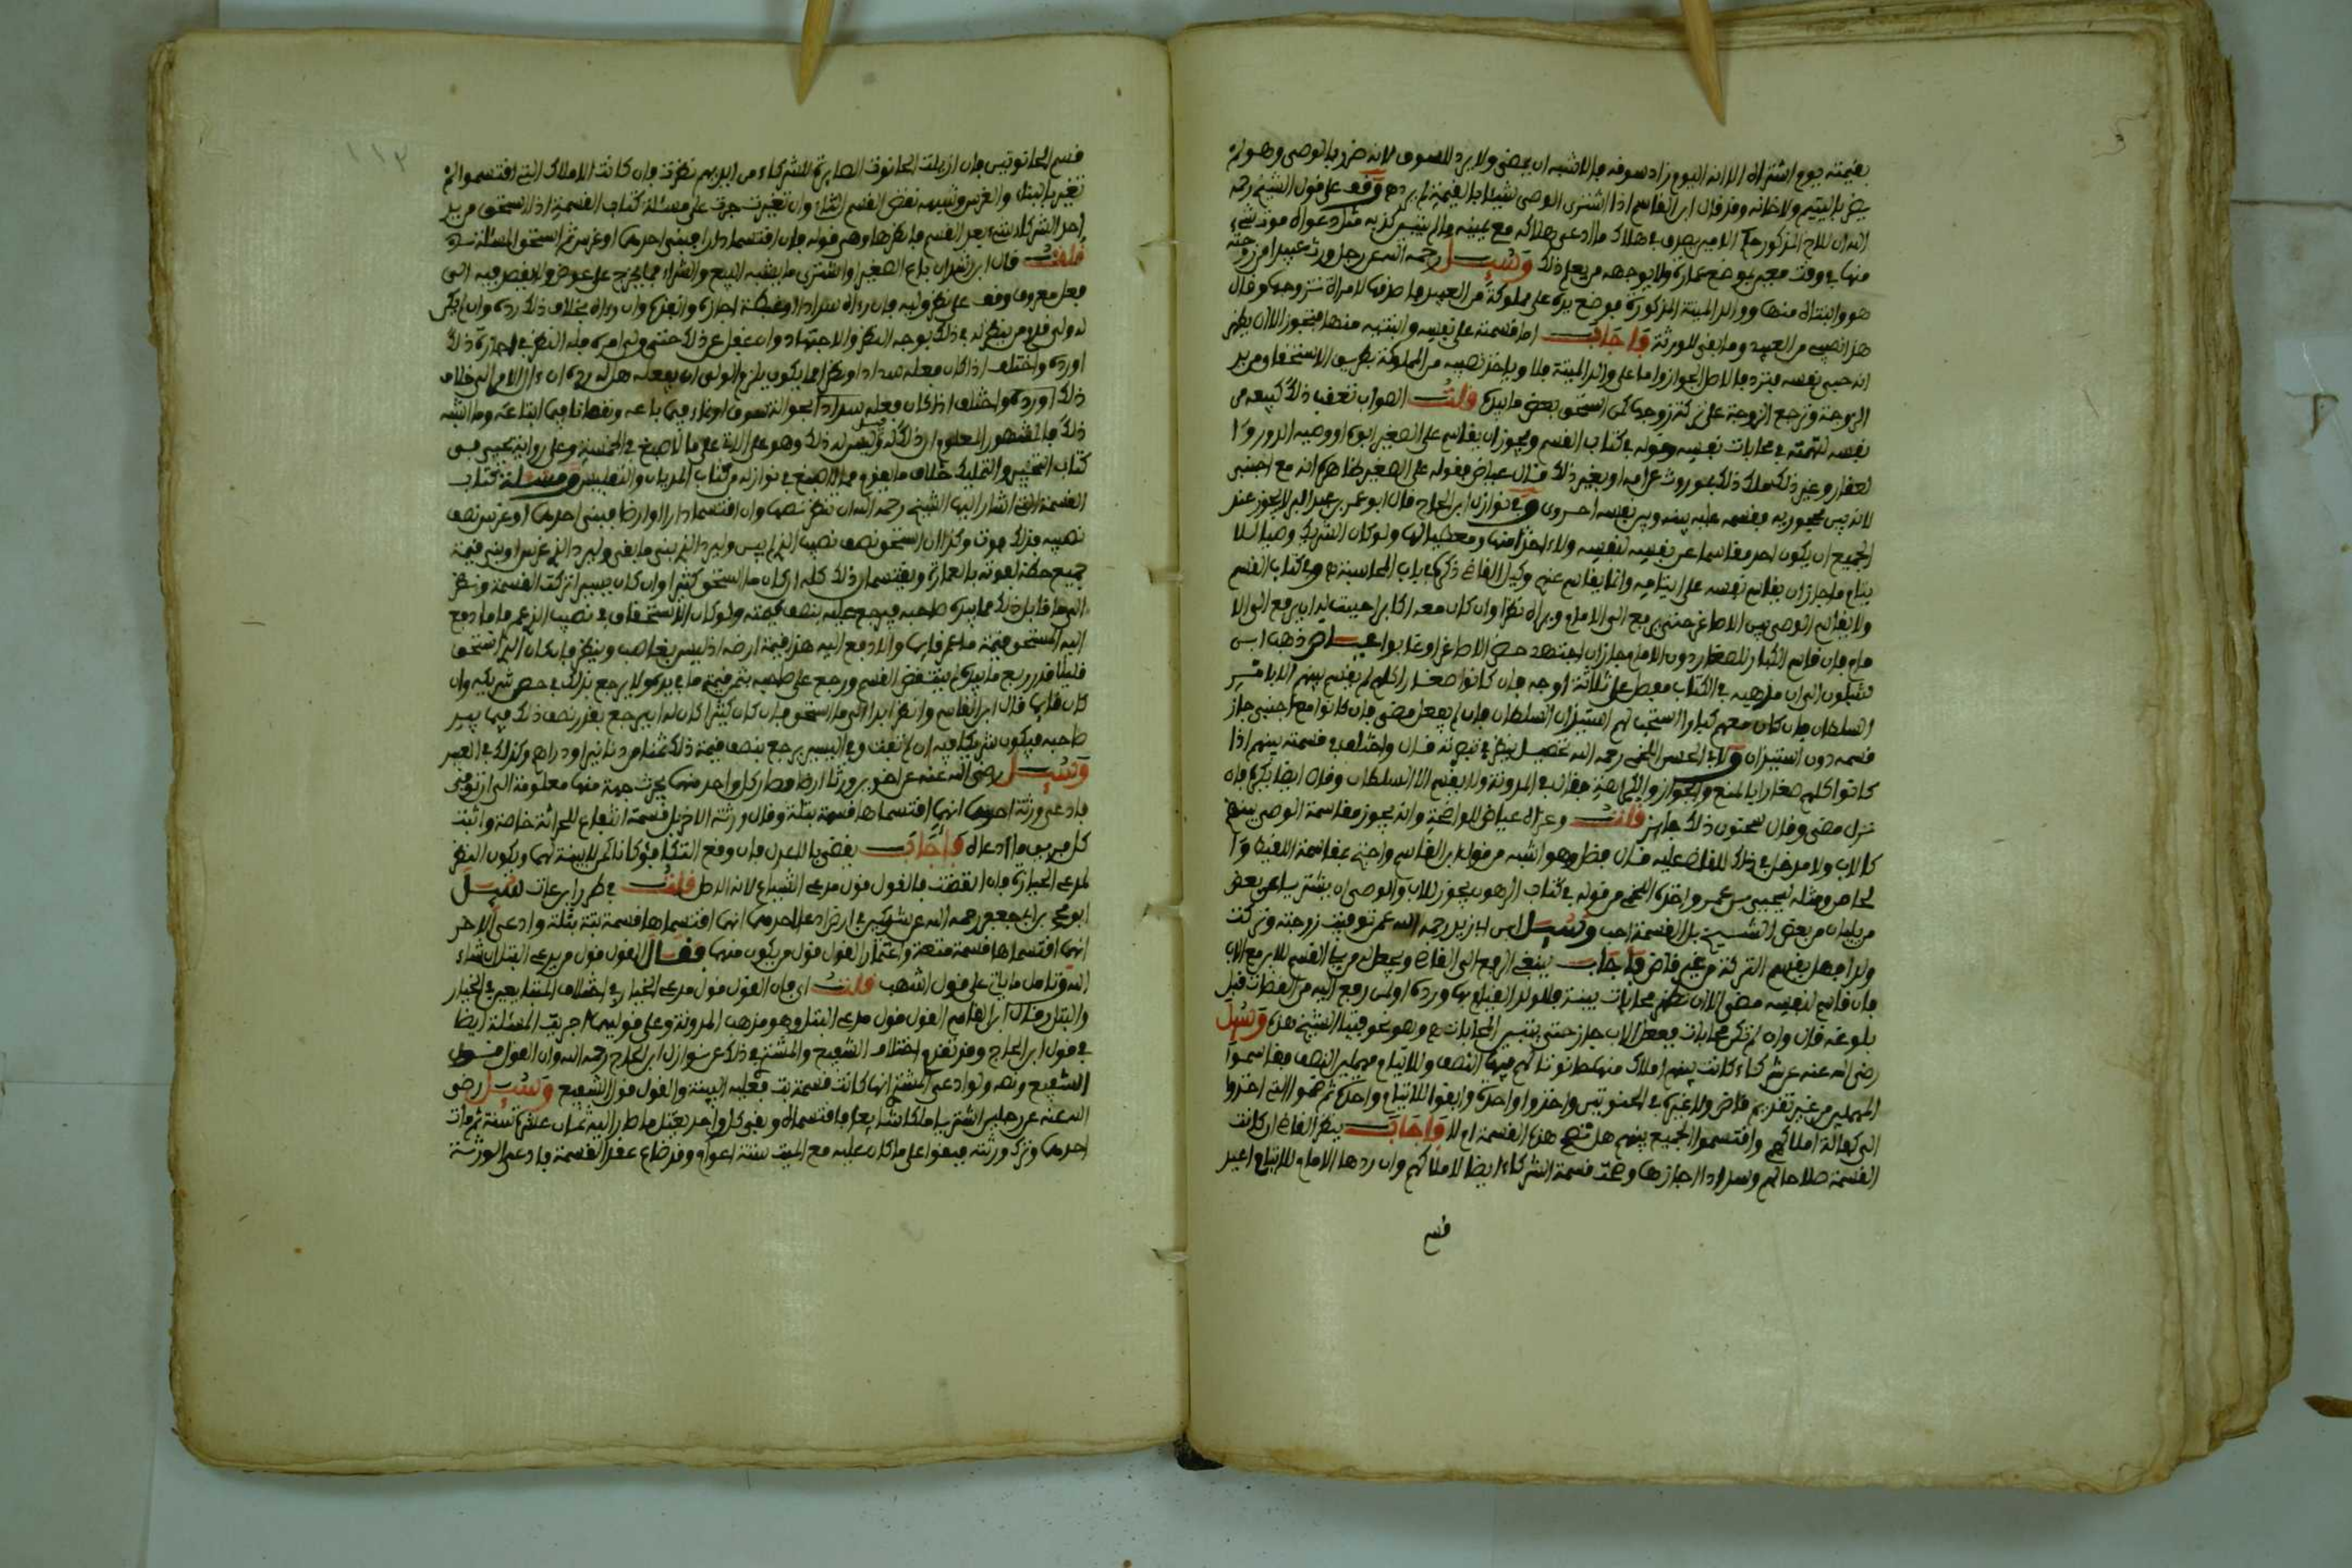 بقيمته يوم اشتراه الا انه اليوم زاد سوقه فالاشبه ان يمضى ولا يرد للسوق لانه ضر بالوصى وهو لم
يضر باليتيم ولا خانه وقد قال ابن القاسم اذا اشترى الوصى شيئا بالقيمة لم يرد وقف على قول الشيخ رحمه
منها فى وقت معين بموضع عمارة ولا يوجهه من يعلم ذلك وسيل رحمه الله عن رجل ورث عبيدا من زوجته
هو وابنتاه منها ووالد الميتة المذكورة فوضع يده على مملوكة من العبيد واصدقها لامراة تزوجها وقال
هذا نصيبى من العبيد وما بقى للورثة فاجاب اما قسمته على نفسه وابنتيه منها فتجوز الا ان يظهر
انه حابى نفسه فترد والاصل الجواز واما على والد الميتة فلا وياخذ نصيبه من المملوكة بطريق الاستحقاق من يد
الزوجة وترجع الزوجة على تركة زوجها كمن استحق بعض ما بيدها قلت الصواب تعقب ذلك كبيعه من
نفسه لتهمته فى محابات نفسه وقوله فى كتاب القسم ويجوز ان يقاسم على الصغير ابوه او وصيه الدور و
العقار وغير ذلك ملك ذلك بموروث عن امه او بغير ذلك قال عياض فقوله على الصغير ظاهره انه مع اجنبى
لانه بين محجوريه فقسمه عليه بينه وبين نفسه احرى وفى نوازل ابن الحاج قال ابو عمر بن عبد البر لا يجوز عند
الجميع ان يكون احد مقاسما عن نفسه لنفسه ولا اخذا منها ومعطيا لها ولو كان الشريك وصيا للا
يتام ما جاز ان يقاسم نفسه على ايتامه وانما يقاسم عنهم وكيل القاضى ذكره فى باب المحاسبة وفى كتاب القسم
ولا يقاسم الوصى بين الاصاغر حتى يرفع الى الامام ويراه نظرا وان كان معه اكابر احببت له ان يرفع الى الا
مام فان قاسم الكبار للصغار دون الامام جاز ان اجتهد حضر الاصاغر او غابوا عياض ذهب ابن
شبلون الى ان مذهبه فى الكتاب مفصل على ثلاثة اوجه فان كانوا صغارا كلهم لم يقسم بينهم الا بامر
السلطان فان كان معهم كبار استحب لهم استيذان السلطان فان لم يفعل مضى فان كانوا مع اجنبى جاز
قسمه دون استيذان ولابى الحسن اللخمى رحمه الله تفصيل ينظر فى تبصرته قال واختلف فى قسمته بينهم اذا
كانوا كلهم صغارا بالمنع والجواز والكراهة فقال فى المدونة ولا يقسم الا السلطان وقال ايضا يكره فان
نزل مضى وقال سحنون ذلك جايز قلت وعزاه عياض للواضحة وانه يجوز مقاسمة الوصى بينهم
كالاب ولا مدخل فى ذلك للقاضى عليه قال فضل وهو اشبه من قول ابن القاسم واحتج بمقاسمة اللقيط
ومثله ليحيى بن عمر واخذه اللخمى من قوله فى كتاب الرهون يجوز للاب والوصى ان يشتر يا من بعض
من يليان من بعض الشيخ بل القسمة احب وسيل ابن ابى زيد رحمه الله عمن توفيت زوجته وتركت
ولدا فهل يقسم التركة من غير قاض فاجاب ينبغى الرفع الى القاضى ويجعل له من يلى القسم للابن مع الاب
فان قاسم لنفسه مضى الا ان تظهر محابات بينة فللولد القيام بها ورده او لمن رفع اليه من القضات قبل
بلوغه فان راى لم تكن محابات ففعل الاب جاز حتى تتبين المحابات وهو نحو فتيا الشيخ هذه وسيل
رضى الله عنه عن شركاء كانت بينهم املاك منها حانوتان لهم فيهما النصف وللايتام مهملين النصف فقاسموا
المهملين من غير تقديم قاض ولا غيره فى الحنوتين واخذوا واحدة وابقوا للايتام واحدة ثم ضموا التى اخذوا
الى كوالة املاكهم واقتسموا الجميع بينهم هل تصح هذه القسمة ام لا فاجاب ينظر القاضى ان كانت
القسمة صلاحا لهم وسدادا اجازها وصحت قسمة الشركاء ايضا لاملاكهم وان ردها الامام للايتام اعيد
قسم
قسم الحانوتين فان ازيلت الحانوت الصايرة للشركاء من ايديهم نظرت فان كانت الاملاك التى اقتسموا لم
تتغير بالبناء والغرس وشبهه نقض القسم الثانى وان تغيرت جرت على مسئلة كتاب القسمة اذا استحق من يد
احد الشركاء شىء بعد القسم فانظرها وهى قوله فان اقتسما دارا فبنى احدهما او غرس ثم استحق المسئلة
قلت قال ابن رشد ان باع الصغير او اشترى ما يشبه البيع والشراء مما يخرج على عوض ولا يقصد فيه الى
فعل معروف وقف على نظر وليه فان رءاه سدادا وغبطة اجازه وانفذه وان رءاه بخلاف ذلك رده وان لم يكن
له ولى قدم من ينظر له فى ذلك بوجه النظر والاجتهاد وان غفل عن ذلك حتى ولى امره فله النظر فى اجازة ذلك
او رده واختلف اذا كان فعله سدادا ونظرا مما يكون يلزم الولى ان يفعله هل له رده ان ءال الامر الى خلاف
ذلك فالمشهور المعلوم ان ذلك له وقيل ليس له ذلك
كتاب التخيير والتمليك خلاف ما يقوم مما لاصبغ فى نوازله من كتاب المديان والتفليس ومسئلة كتاب
القسمة التى اشار اليها الشيخ رحمه الله ان ينظر نصها وان اقتسما دارا او ارضا فبنى احدهما او غرس نصف
نصيبه فذلك فوت وكذا ان استحق نصف نصيب الذى لم يبن وليرد الذى بنى ما بقى وليرد الذى غرس او بنى قيمة
جميع حظه لفوته بالعمارة ويقتسمان ذلك كله ان كان ما استحق كثيرا وان كان يسيرا تركت القسمة ونظر
الى ما قابل ذلك مما بيد صاحبه فيرجع عليه بنصف قيمته ولو كان الاستحقاق فى نصيب الذى عمر فاما دفع
اليه المستحق قيمة ما عمر قايما والا دفع اليه هذا قيمة ارضه اذ ليس بغاصب وينظر فان كان الذى استحق
قليلا قدر ربع ما بيده لم ينتقض القسم ورجع على صاحبه بثمن قيمة ما فى يده ولا يرجع بذلك فى حصة شريكه وان
كان قايما قال ابن القاسم وانظر ابدا الى ما استحق فان كان كثيرا كان له ان يرجع بقدر نصف ذلك فيما بيد
صاحبه فيكون شريكا فيه ان لم يفت وفى اليسير يرجع بنصف قيمة ذلك ثمنا من دنانير او دراهم وكذلك فى العبيد
وسيل رضى الله عنه عن اخوين ورثا ارضا وصار كل واحد منهما يحرث جهة منها معلومة الى ان توفى
فادعى ورثة احدهما انهما اقتسماها قسمة بتلة وقال ورثة الاخر بل قسمة انتفاع للحراثة خاصة واثبت
كل فريق ما ادعاه فاجاب يقضى بالاعدل فان وقع التكافؤ كانا كمن لا بينة لهما ويكون النظر
لمدعى الحيازة فان انقضت فالقول قول مدعى الشياع لانه الاصل قلت فى طرر ابن عات سيل
ابو محمد بن ابى جعفر رحمه الله عن شريكين فى ارض ادعى احدهما انهما اقتسماها قسمة بتة بتلة وادعى الاخر
انهما اقتسماها قسمة متعة واغتمار القول قول من يكون منهما فقال القول قول من يدعى البتل ان شاء
الله وتامل ما ياتى على قول اشهب قلت اى فان القول قول مدعى الخيار فى اختلاف المتبايعين فى الخيار
والبتل وقال ابن القاسم القول قول مدعى البتل وهو مذهب المدونة وعلى قوليهما جرت المسئلة ايضا
فى قول ابن الحاج وقد تقدم اختلاف الشفيع والمشترى ذلك عن نوازل ابن الحاج رحمه الله وان القول قول
الشفيع ونصه ولو ادعى المشترى انها كانت قسمة بت فعليه البينة والقول قول الشفيع وسيل رضى
الله عنه عن رجلين اشتريا ملكا شايعا فاقتسماه وبقى كل واحد يغتل ما صار اليه ثمان عشرة سنة ثم مات
احدهما وترك ورثته فبقوا على ما كان عليه مع الميت ستة اعوام وقد ضاع عقد القسمة فادعى الورثة